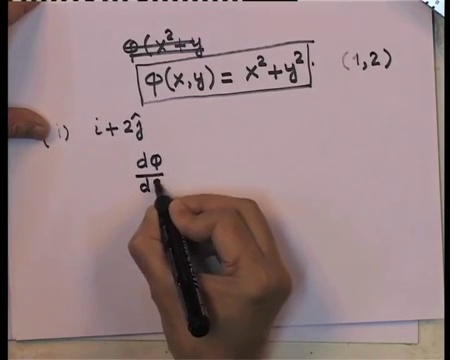 Φ(x²+y
Φ(x,y) = x²+y². (1,2)
(i) i + 2ĵ
dΦ
d